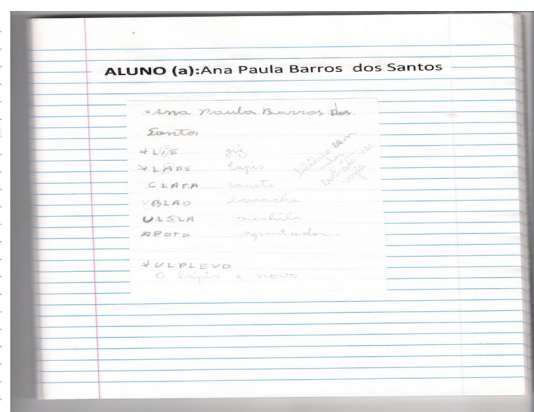 ALUNO (a):Ana Paula Barros dos Santos
Ana Paula Barros dos
Santos
LIZE giz
LAPE lapis
CLAPA caneta
BLAO borracha
ULSLA mochila
APOTO apontador
ULPLEVO
O lapis e novo